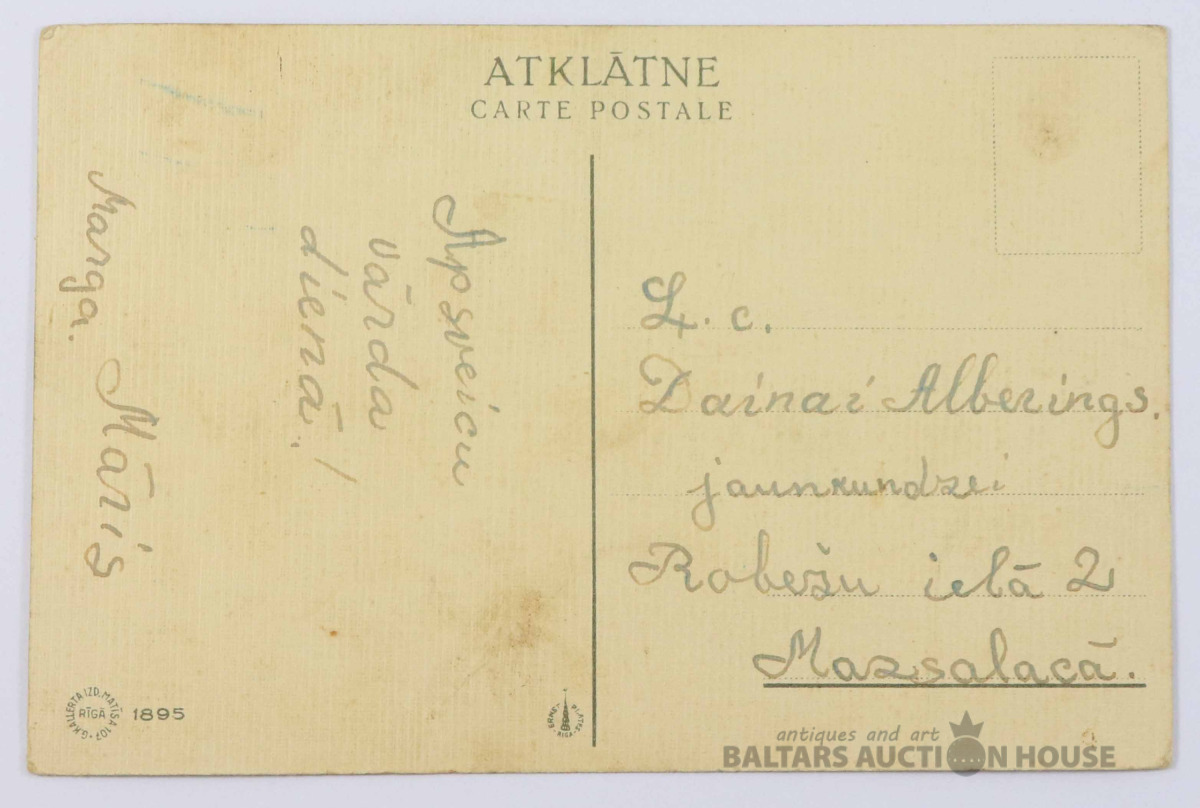 ATKLĀTNE
CARTE POSTALE
Apsveicu
vārda
dienā!
Māris
Marga.
L. c.
Dainai Alberings.
jaunkundzei
Robežu ielā 2
Mazsalacā.
G.KALLERTA IZD. MATĪSA 107
RĪGĀ
1895
ERNST PLATES RIGA
antiques and art
BALTARS AUCTION HOUSE